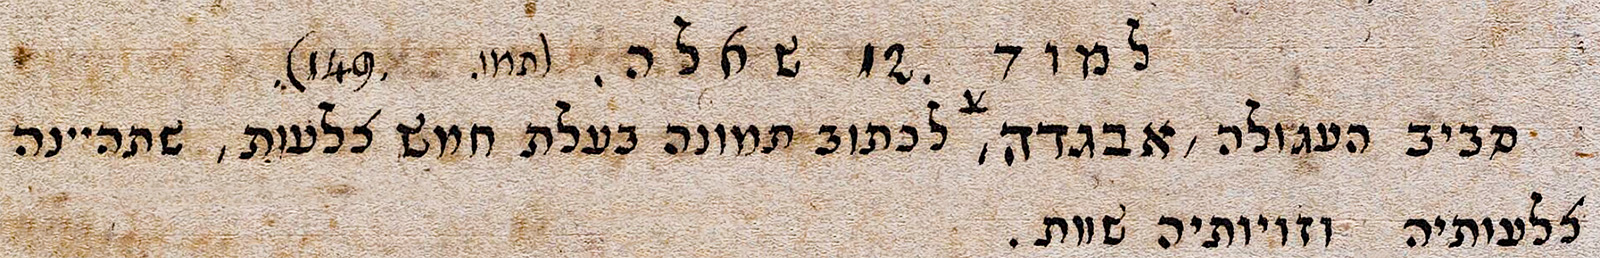 למוד .12 שאלה. (תמו. 149.)
סביב העגולה, אבגדה, לכתוב תמונה בעלת חמש צלעות, שתהיינה
צלעותיה וזויותיה שוות.